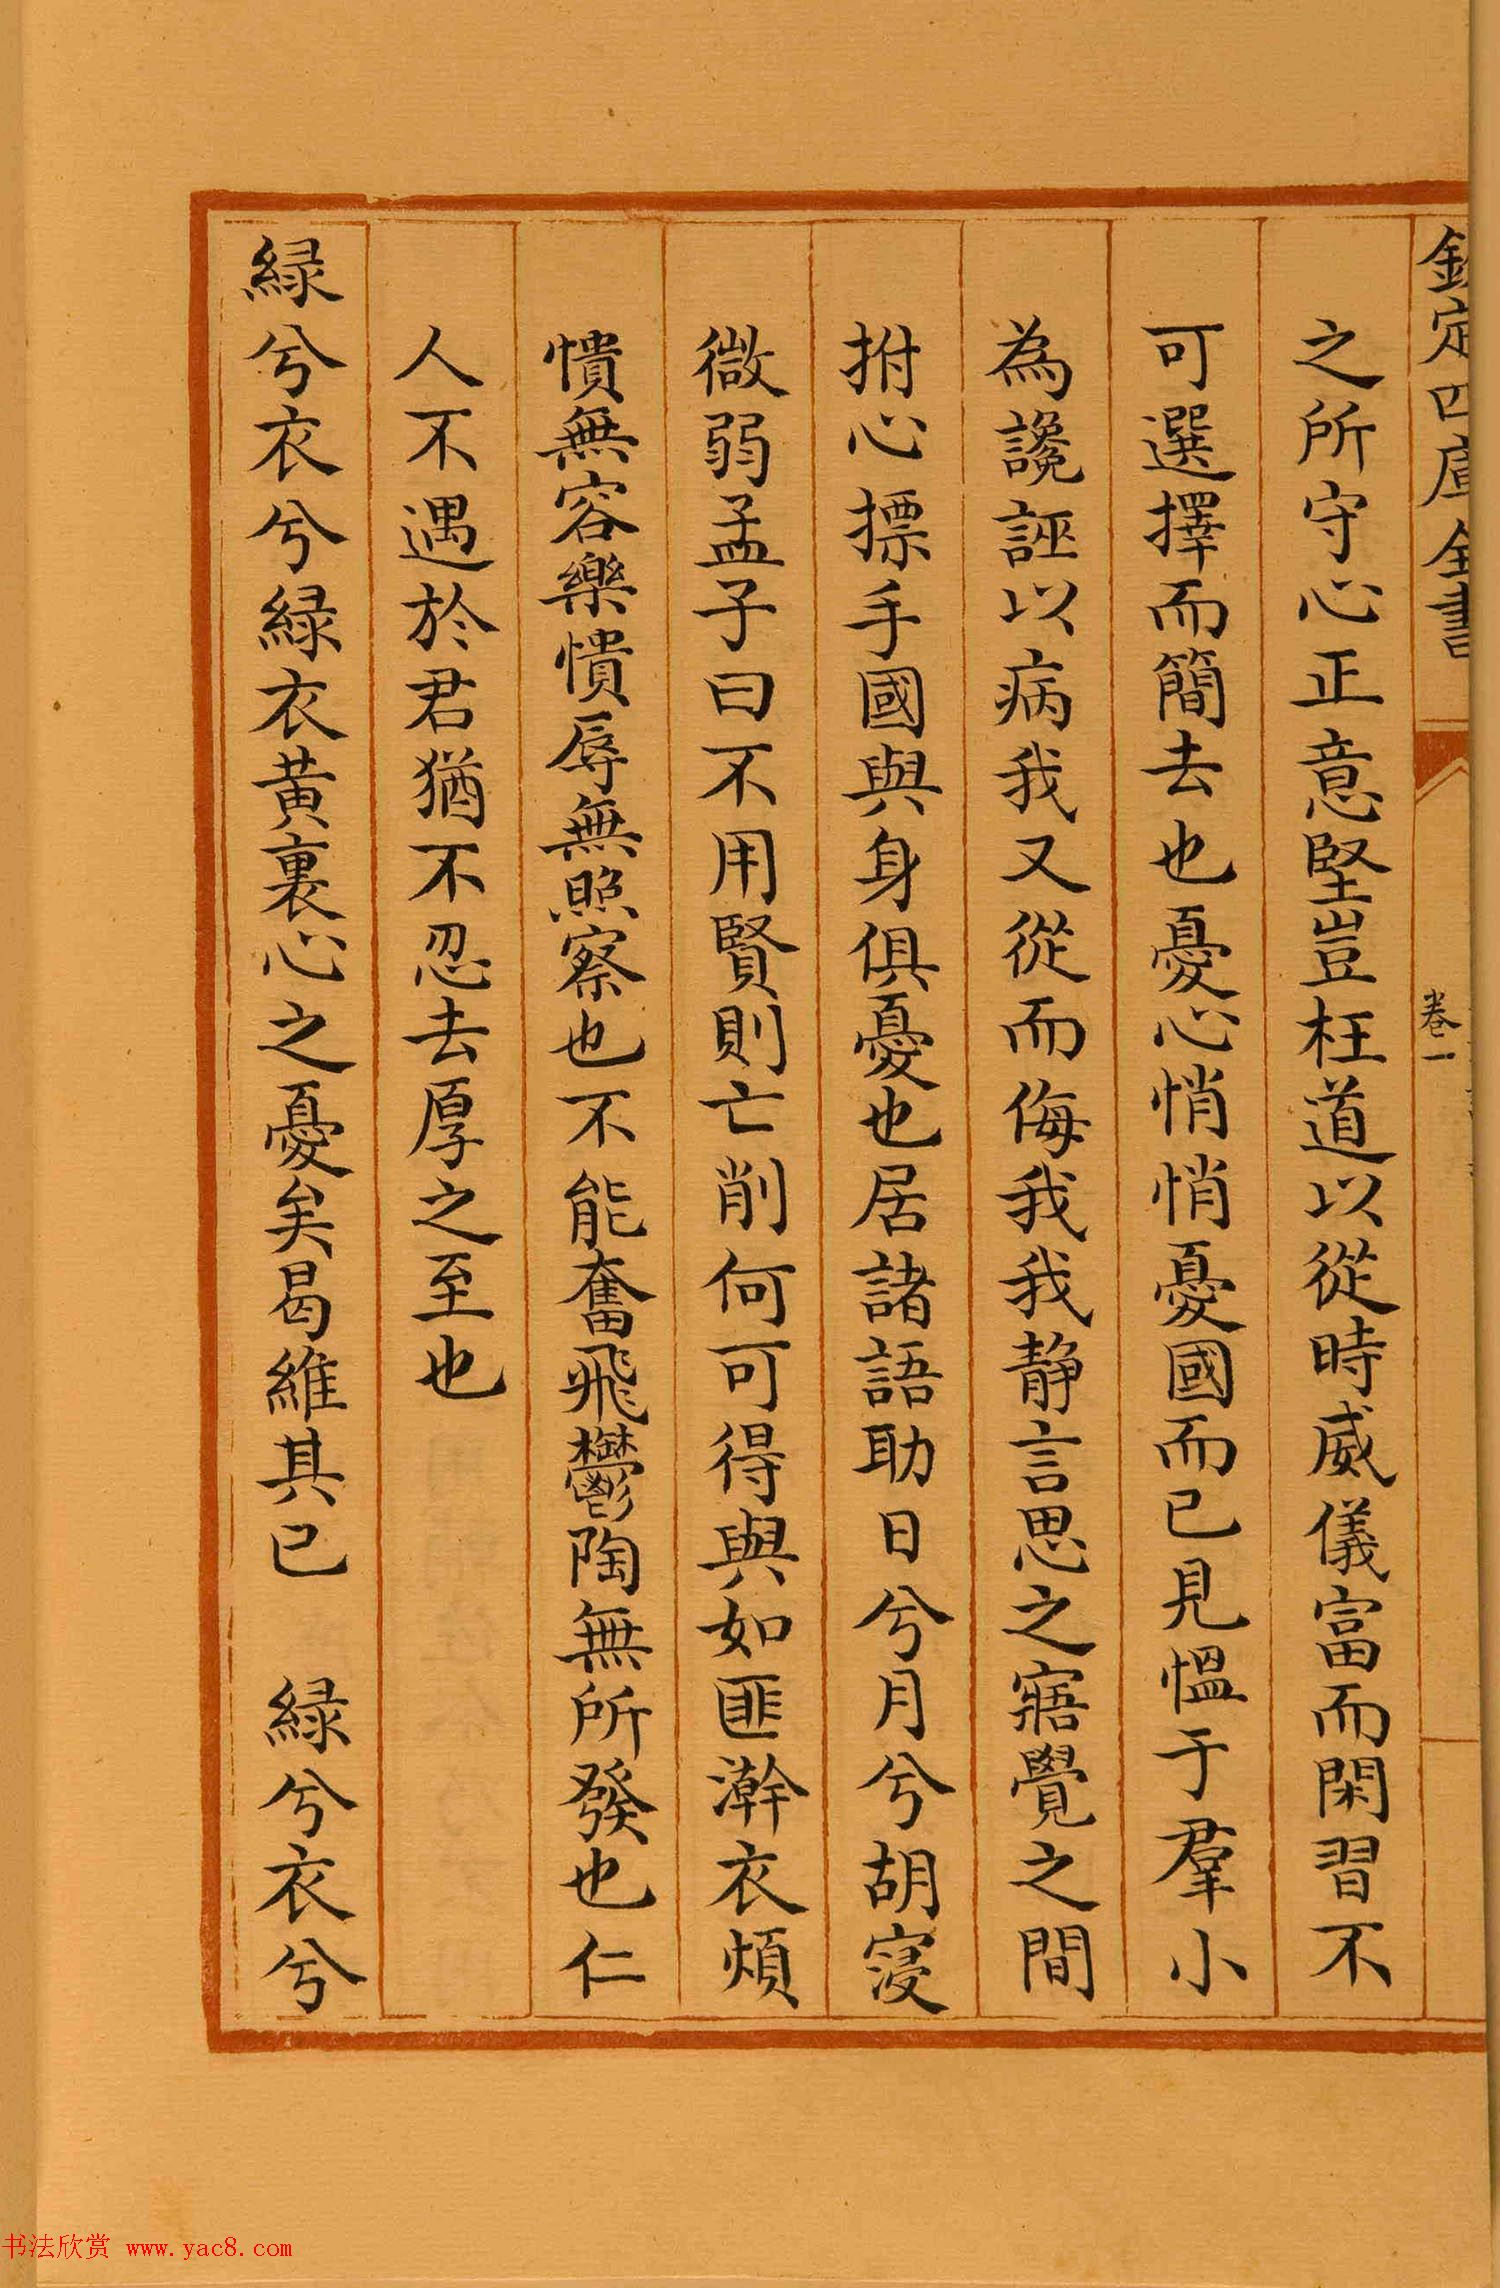 欽定四庫全書
卷一
之所守心正意堅豈枉道以從時威儀富而閑習不
可選擇而簡去也憂心悄悄憂國而已見慍于羣小
為讒誣以病我又從而侮我我静言思之寤覺之間
拊心摽手國與身俱憂也居諸語助日兮月兮胡寖
微弱孟子曰不用賢則亡削何可得與如匪澣衣煩
憒無容樂憒辱無照察也不能奮飛鬱陶無所發也仁
人不遇於君猶不忍去厚之至也
緑兮衣兮緑衣黄裏心之憂矣曷維其已 緑兮衣兮
书法欣赏 www.yac8.com